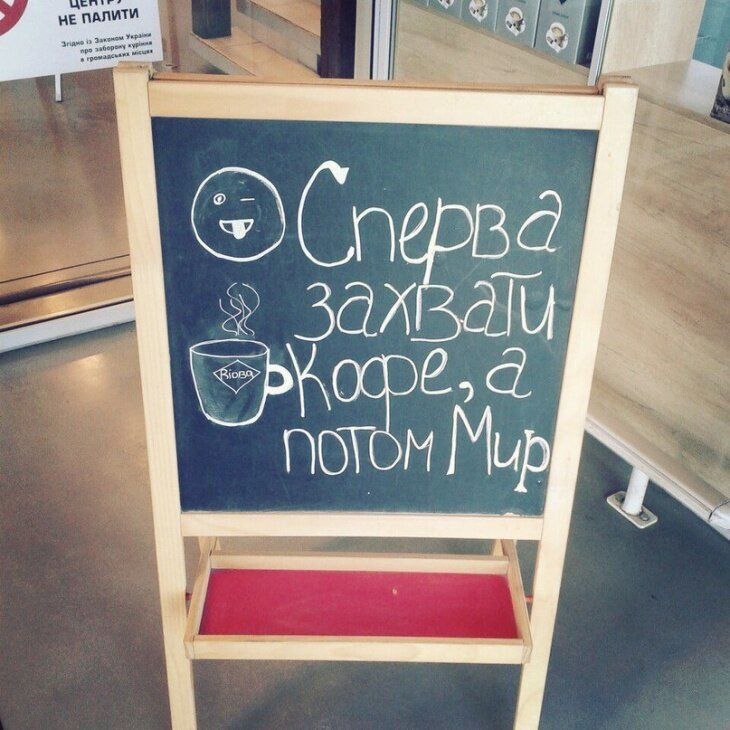 ЦЕНТРУ
НЕ ПАЛИТИ
Згідно із Законом України
про заборону куріння
в громадських місцях
Сперва
захвати
кофе, а
потом Мир
Rioba